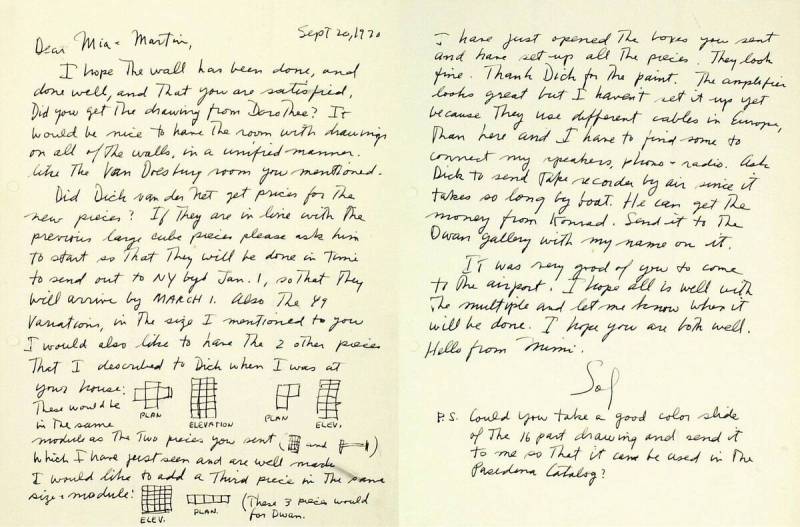 Sept 20, 1970
Dear Mia + Martin,
I hope the wall has been done, and
done well, and that you are satisfied.
Did you get the drawing from Dorothee? It
would be nice to have the room with drawings
on all of the walls, in a unified manner.
like the Van Doesburg room you mentioned.
Did Dick van der Net get prices for the
new pieces? If they are in line with the
previous large cube pieces please ask him
to start so that they will be done in time
to send out to NY by Jan. 1, so that they
will arrive by MARCH 1. Also the 49
Variations, in the size I mentioned to you
I would also like to have the 2 other pieces
that I described to Dick when I was at
your house:
These would be
PLAN ELEVATION PLAN ELEV.
in the same
module as the two pieces you sent ( and )
which I have just seen and are well made
I would like to add a third piece in the same
size + module: (These 3 pieces would
ELEV. PLAN. for Dwan.
I have just opened the boxes you sent
and have set up all the pieces. They look
fine. Thank Dick for the paint. The amplifier
looks great but I haven't set it up yet
because they use different cables in Europe,
than here and I have to find some to
connect my speakers, phono + radio. Ask
Dick to send tape recorder by air since it
takes so long by boat. He can get the
money from Konrad. Send it to the
Dwan gallery with my name on it.
It was very good of you to come
to the airport. I hope all is well with
the multiple and let me know when it
will be done. I hope you are both well.
Hello from Mimi.
Sol
P.S. Could you take a good color slide
of the 16 part drawing and send it
to me so that it can be used in the
Pasedena Catalog?